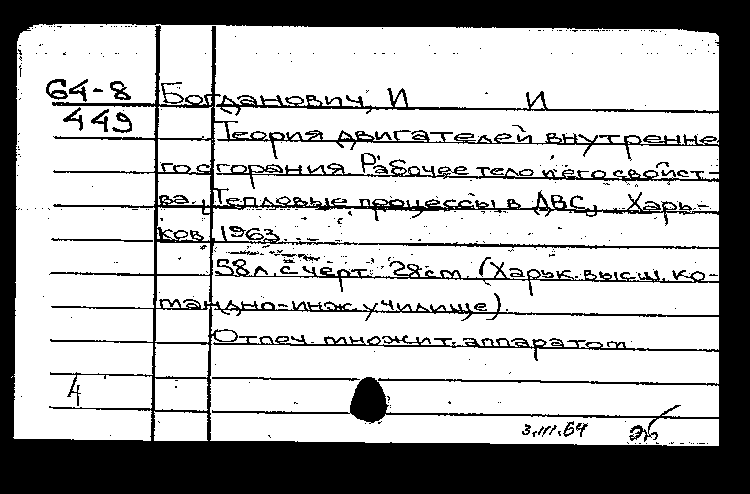 64-8
449
Богданович, И И
Теория двигателей внутренне
го сгорания. Рабочее тело и его свойст-
ва. Тепловые процессы в ДВС, Харь-
ков, 1963.
58л. с черт. 28см. (Харьк. высш. ко-
мандно-инж. училище).
Отпеч. множит. аппаратом
4
3.III.64